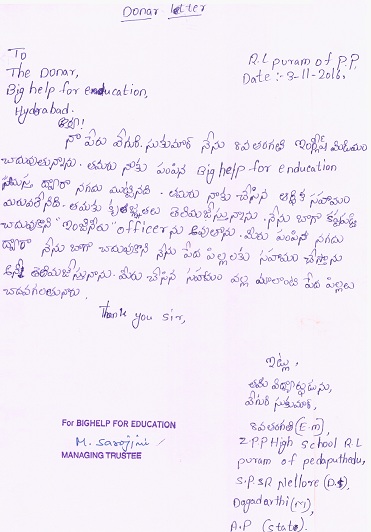 Donar Letter
To
The Donar,
Big help for enducation,
Hyderabad.
R.L puram of P.P.
Date :- 3-11-2016.
అయ్యా!
నా పేరు వేగురి. సుకుమార్ నేను 8వ తరగతి ఇంగ్లీష్ మీడియం
చదువుతున్నాను. తమరు నాకు పంపిన Big help for enducation
సంస్థ ద్వారా నగదు ముట్టినది. తమరు నాకు చేసిన ఆర్థిక సహాయం
మరువలేనిది. తమకు కృతజ్ఞతలు తెలియజేస్తున్నాను. నేను బాగా కష్టపడి
చదువుకొని "ఇంజినీరు" officer ను అవుతాను. మీరు పంపిన నగదు
ద్వారా నేను బాగా చదువుకొని నేను పేద పిల్లలకు సహాయం చేస్తాను
అని తెలియజేస్తున్నాను. మీరు చేసిన సహాయం వల్ల మాలాంటి పేద పిల్లలు
చదవగలుగుతున్నారు.
Thank you sir,
ఇట్లు,
తమ విద్యార్థుడును,
వేగురి సుకుమార్,
8వ తరగతి (E.m),
Z.P.P High School R.L
puram of pedaputhedu,
S.P.S.R Nellore (D.t),
Dagadarthi (M),
A.P (state).
For BIGHELP FOR EDUCATION
M. Sarojini
MANAGING TRUSTEE